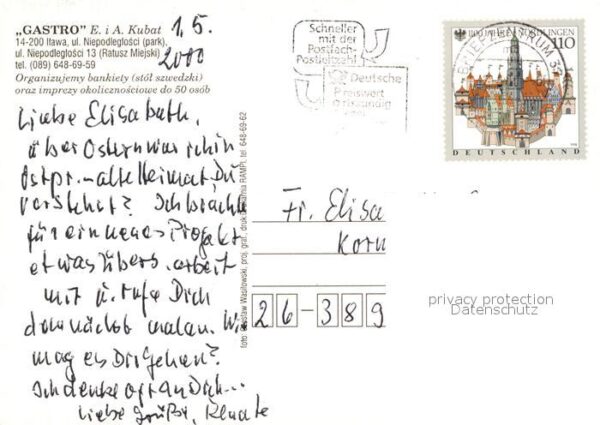 „GASTRO" E. i A. Kubat
14-200 Iława, ul. Niepodległości (park),
ul. Niepodległości 13 (Ratusz Miejski)
tel. (089) 648-69-59
Organizujemy bankiety (stół szwedzki)
oraz imprezy okolicznościowe do 50 osób
1. 5.
2000
Liebe Elisabeth,
über Ostern war ich in
Ostpr. – alte Heimat, Du
verstehst? Ich brachte
für ein neues Projekt
etwas Übers. arbeit
mit u. rufe Dich
demnächst mal an. Wie
mag es Dir gehen?
Ich denke oft an Dich...
Liebe Grüße, Renate
Schneller
mit der
Postfach-
Postleitzahl
Deutsche
Preiswert
1100 JAHRE NÖRDLINGEN
110
BRIEFZENTRUM
DEUTSCHLAND
Fr. Elisa
Korn
26-389
privacy protection
Datenschutz
tel. 648-69-62